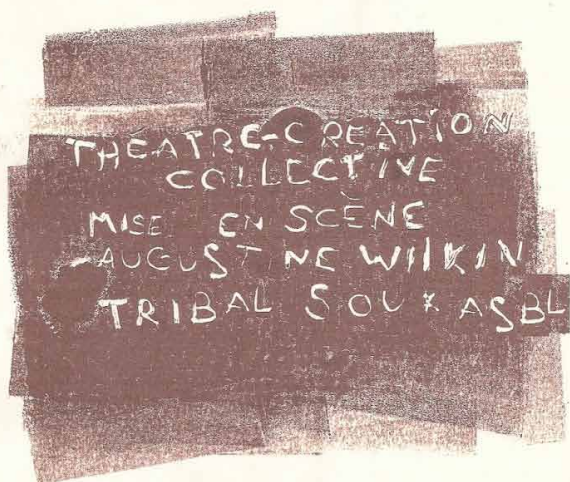 THÉATRE-CREATION
COLLECTIVE
MISE EN SCÈNE
AUGUSTINE WILKIN
TRIBAL SOUK ASBL